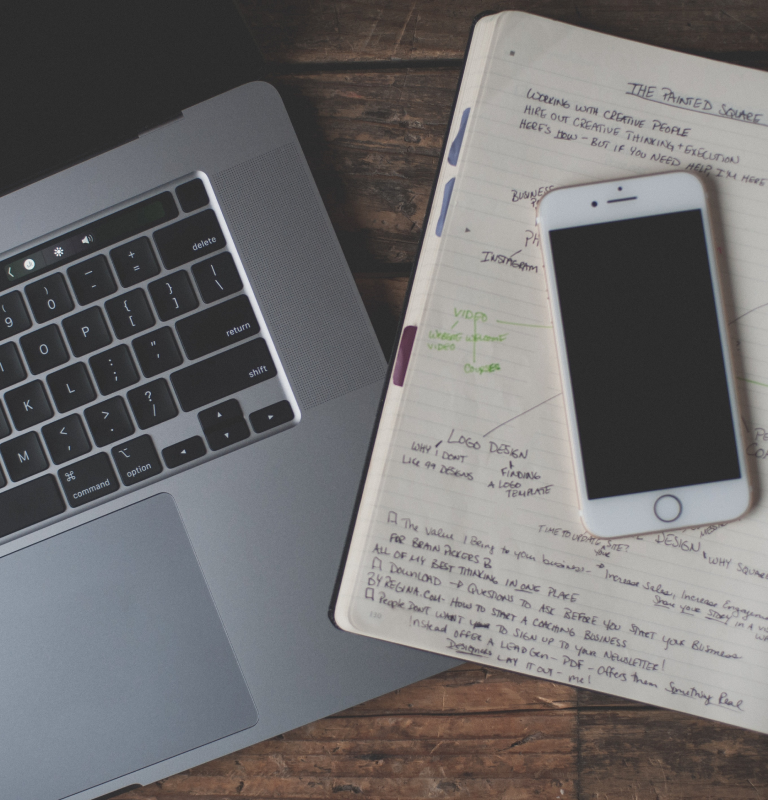 delete
return
shift
command
option
9
0
O
P
K
L
M
THE PAINTED SQUARE
WORKING WITH CREATIVE PEOPLE
HIRE OUT CREATIVE THINKING + EXECUTION
HERE'S HOW - BUT IF YOU NEED HELP I'M HERE
BUSINESS
INSTAGRAM
VIDEO
WELCOME
VIDEO
LOGO DESIGN
WHY I DON'T
LIKE 99 DESIGNS
FINDING
A LOGO
TEMPLATE
DESIGN
WHY SQUARE
The Value I Bring to your business - Increase Sales, Increase
FOR BRAIN PICKERS
Share your STORY in a
ALL OF MY BEST THINKING IN ONE PLACE
DOWNLOAD → QUESTIONS TO ASK BEFORE YOU START YOUR BUSINESS
BY REGINA.COM - HOW TO START A COACHING BUSINESS
People DONT WANT TO SIGN UP TO YOUR NEWSLETTER!
Instead OFFER A LEAD GEN - PDF - Offers them Something Real
Designed LAY IT OUT - me!